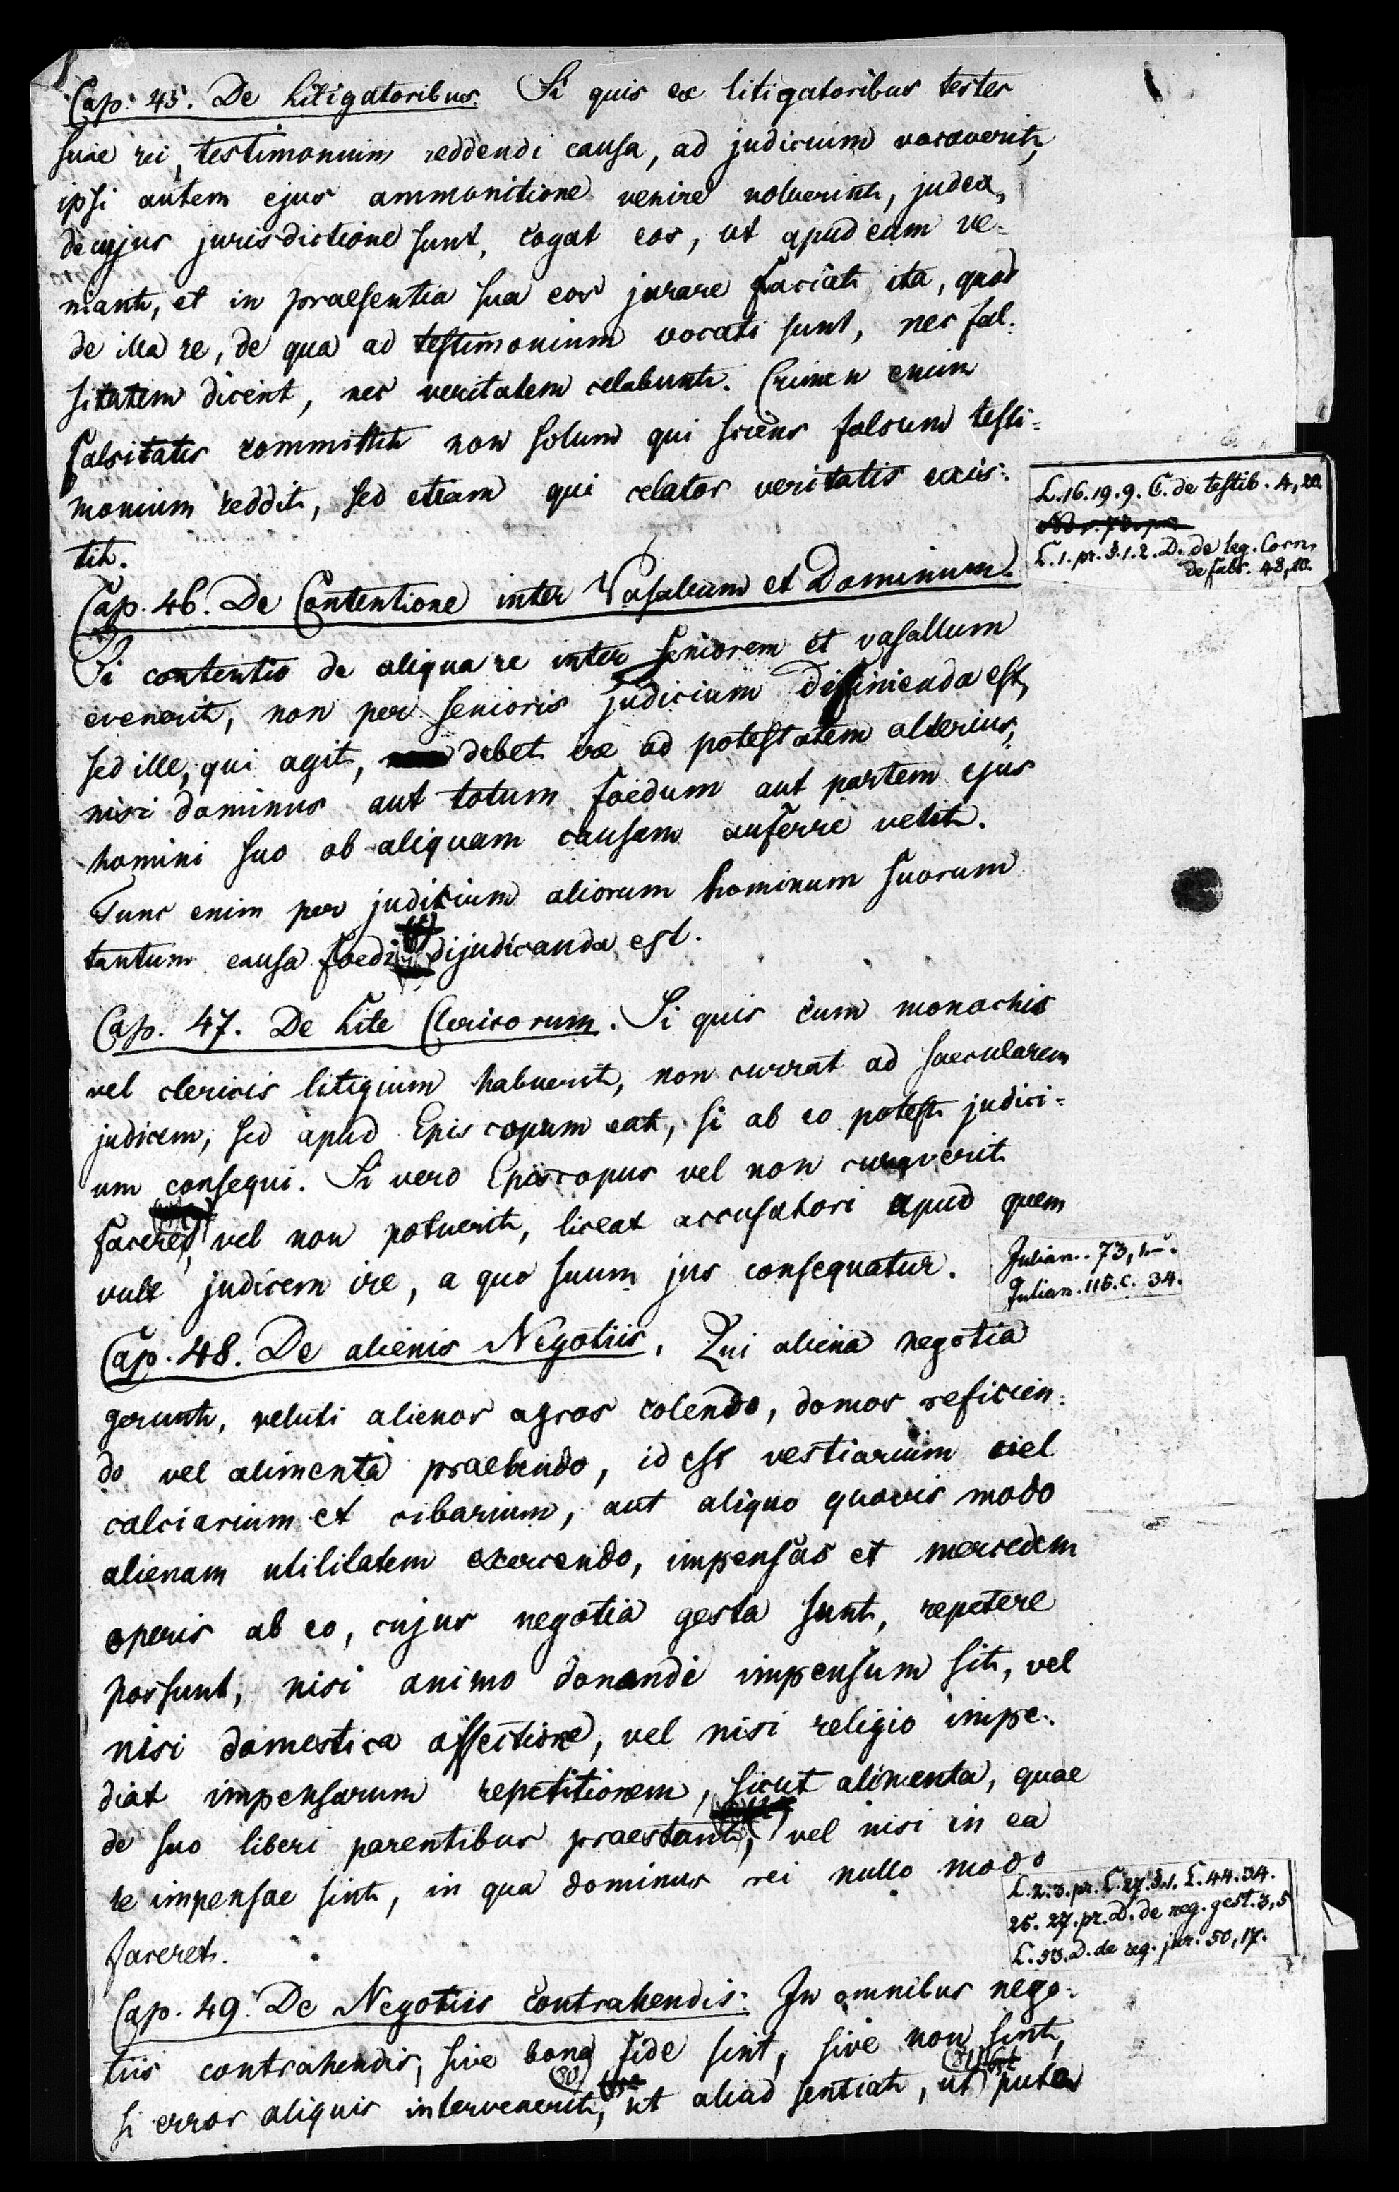 Cap. 45. De Litigatoribus. Si quis ex litigatoribus testes
suae rei, testimonium reddendi causa, ad judicium vocaverit,
ipsi autem ejus ammonitione venire noluerint, judex,
de cujus jurisdictione sunt, cogat eos, ut apud eum ve-
niant, et in praesentia sua eos jurare faciat ita, quod
de illa re, de qua ad testimonium vocati sunt, nec fal-
sitatem dicent, nec veritatem celabunt. Crimen enim
falsitatis committit non solum qui sciens falsum testi-
monium reddit, sed etiam qui celator veritatis exis-
tit.
L. 16. 19. 9. C. de testib. 4, 20.
L. 1. pr. §. 1. 2. D. de leg. Corn.
de fals. 48, 10.
Cap. 46. De Contentione inter Vasallum et Dominum.
Si contentio de aliqua re inter seniorem et vasallum
evenerit, non per senioris judicium difinienda est,
sed ille, qui agit, debet ire ad potestatem alterius,
nisi dominus aut totum foedum aut partem ejus
homini suo ob aliquam causam auferre velit.
Tunc enim per judicium aliorum hominum suorum
tantum causa foedi dijudicanda est.
Cap. 47. De Lite Clericorum. Si quis cum monachis
vel clericis litigium habuerit, non currat ad saecularem
judicem, sed apud Episcopum eat, si ab eo potest judici-
um consequi. Si vero Episcopus vel non curaverit
facere, vel non potuerit, liceat accusatori apud quem
vult judicem ire, a quo suum jus consequatur.
Julian. 73, 1.
Julian. 116. c. 34.
Cap. 48. De alienis Negotiis. Qui aliena negotia
gerunt, veluti alienos agros colendo, domos reficien-
do vel alimenta praebendo, id est vestiarium vel
calciarium et cibarium, aut aliquo quovis modo
alienam utilitatem exercendo, impensas et mercedem
operis ab eo, cujus negotia gesta sunt, repetere
possunt, nisi animo donandi impensum sit, vel
nisi domestica affectione, vel nisi religio impe-
diat impensarum repetitionem, sicut alimenta, quae
de suo liberi parentibus praestant, vel nisi in ea
re impensae sint, in qua dominus rei nullo modo
faceret.
L. 2. 3. pr. L. 27. §. 1. L. 44. 34.
25. 27. pr. D. de neg. gest. 3, 5
L. 53. D. de reg. jur. 50, 17.
Cap. 49. De Negotiis contrahendis. In omnibus nego-
tiis contrahendis, sive bona fide sint, sive non sint,
si error aliquis intervenerit, ut aliud sentiat, ut puta